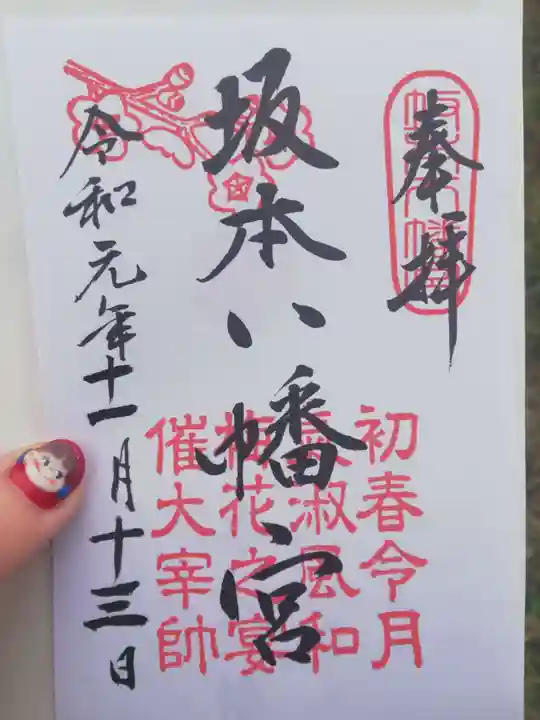 奉拝
坂本八幡宮
初春令月
気淑風和
梅花之宴
催大宰帥
令和元年十一月十三日